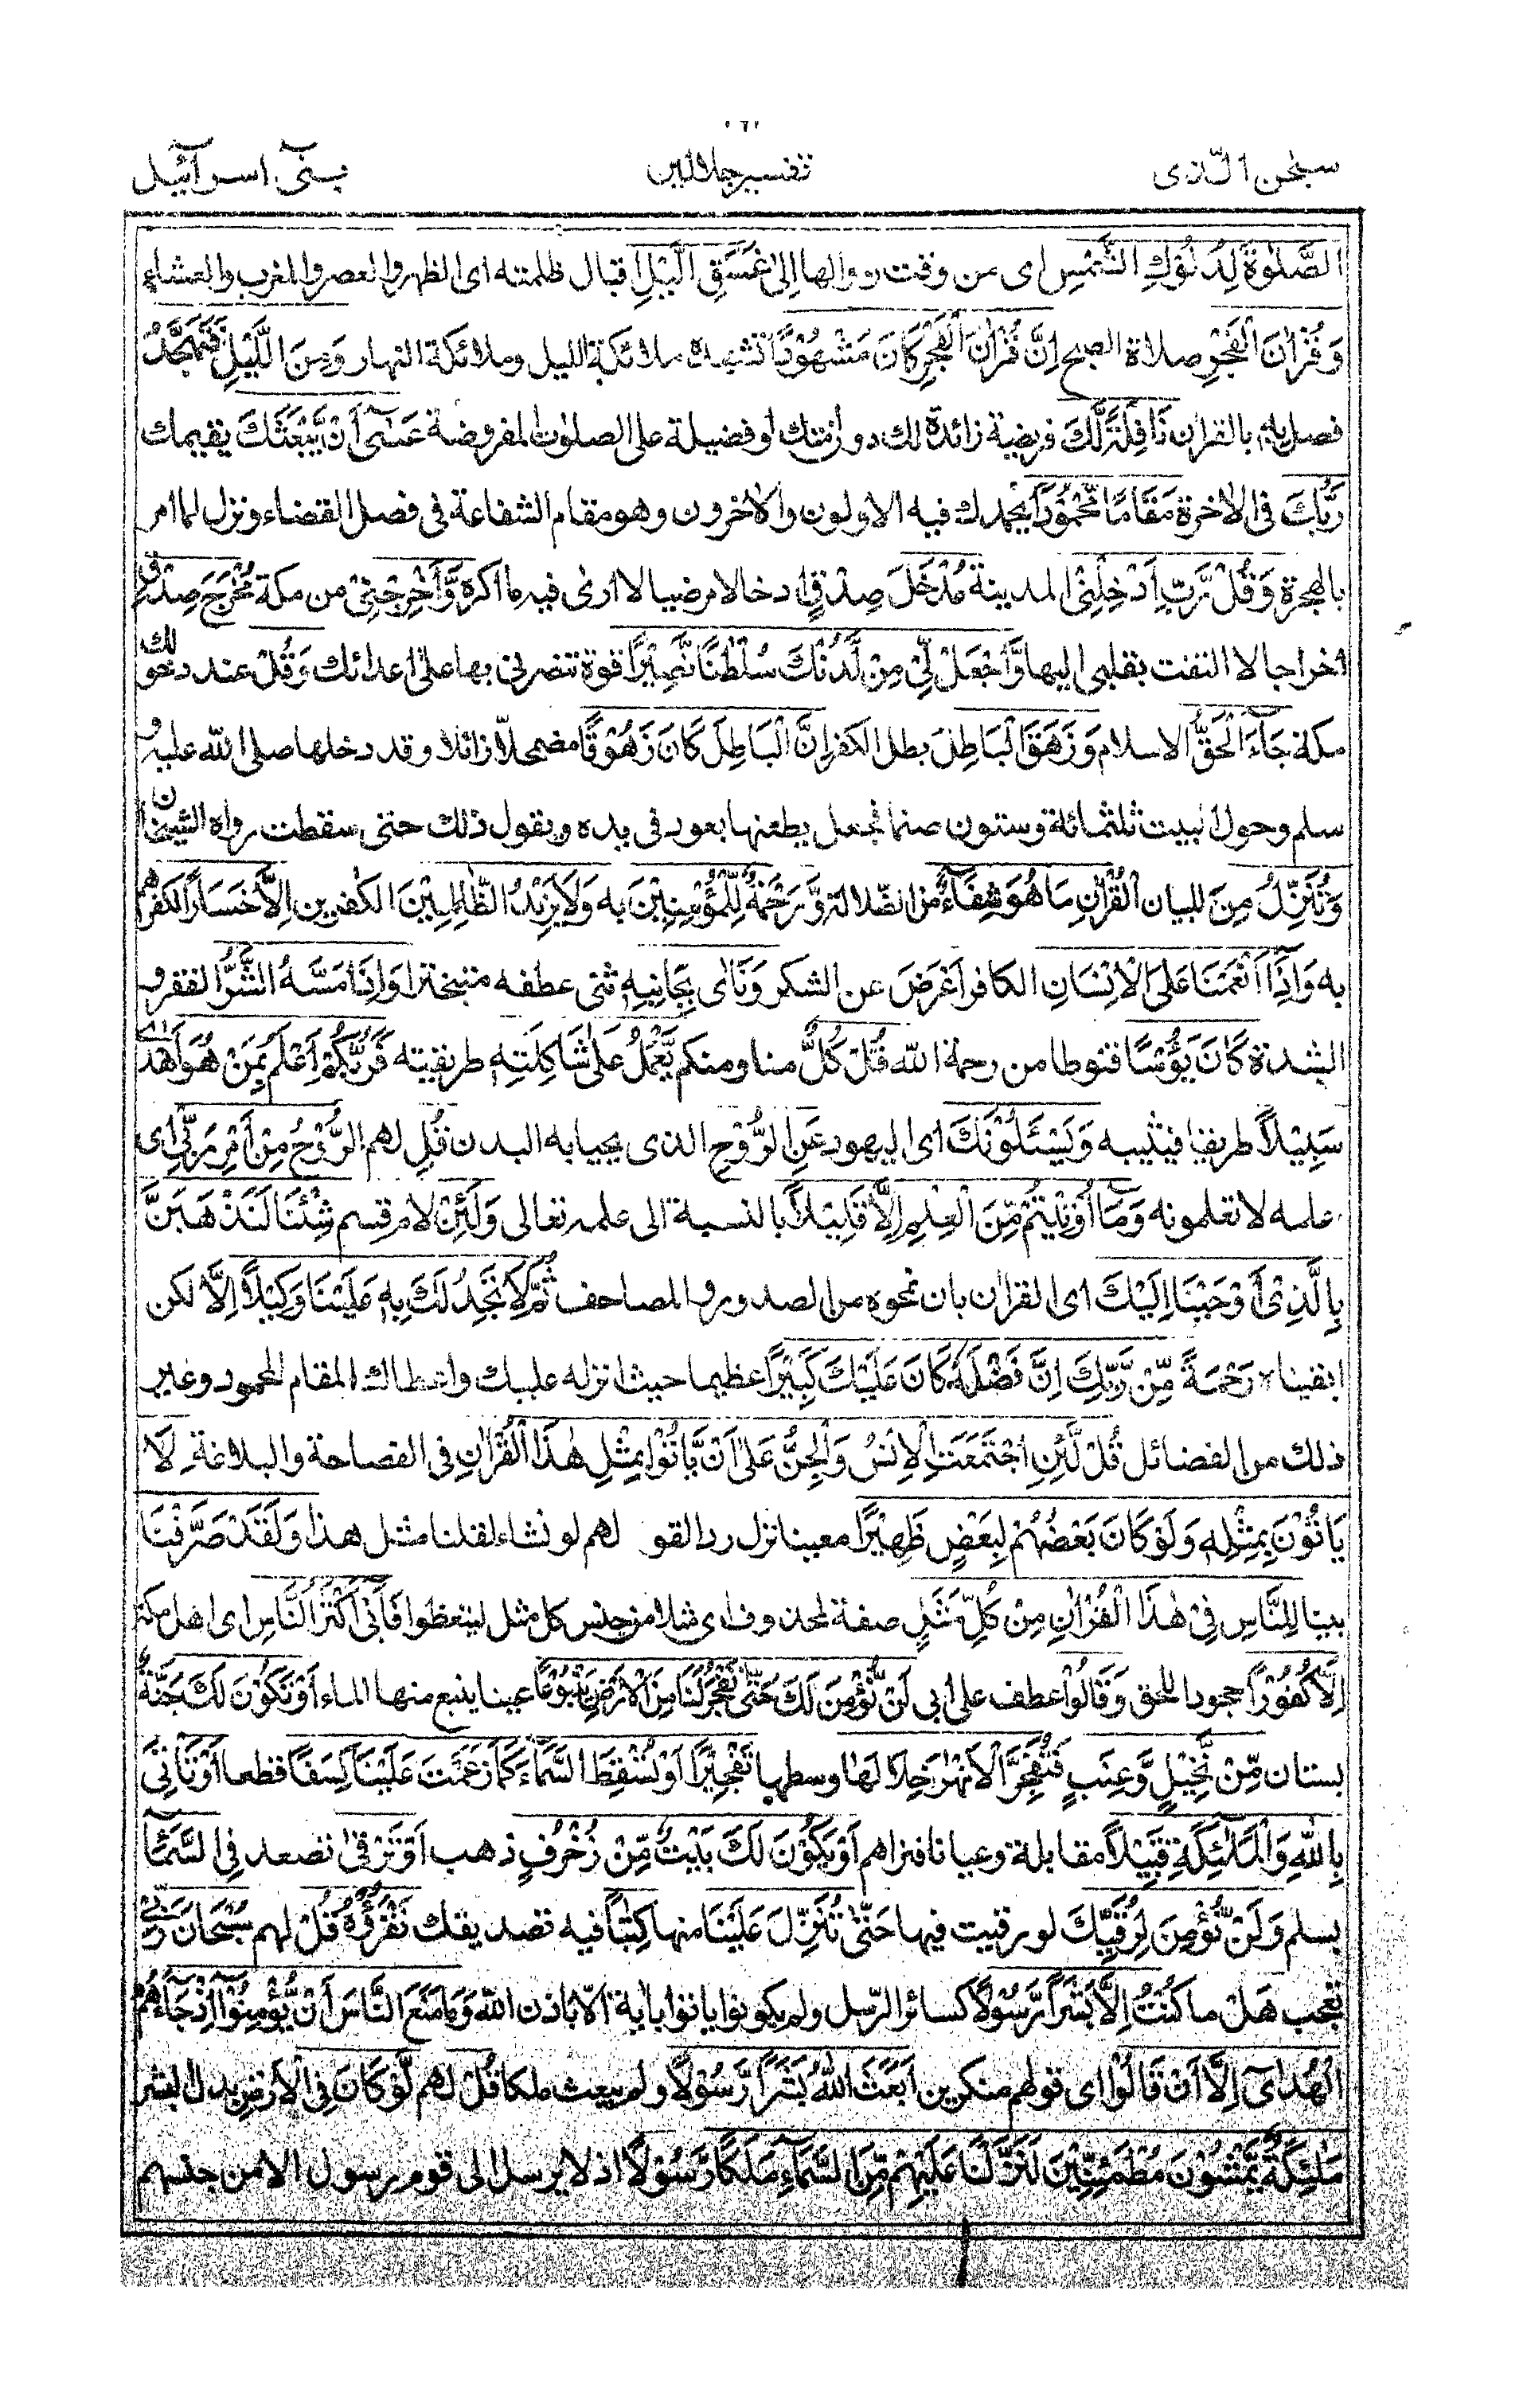 سبٰحن الّذی
تفسير جلالين
بنی اسرآئيل
الصَّلٰوةَ لِدُلُوْكِ الشَّمْسِ اى من وقت زوالها اِلىٰ غَسَقِ الَّيْلِ اقبال ظلمته اى الظهر والعصر والمغرب والعشاء
وَقُرْاٰنَ الْفَجْرِ صلاة الصبح اِنَّ قُرْاٰنَ الْفَجْرِ كَانَ مَشْهُوْدًا تشهده ملائكة الليل وملائكة النهار وَمِنَ الَّيْلِ فَتَهَجَّدْ
فصل بِهٖ بالقراٰن نَافِلَةً لَّكَ فريضة زائدة لك دون امتك او فضيلة على الصلوٰت المفروضة عَسٰٓى اَنْ يَّبْعَثَكَ يقيمك
رَبُّكَ فى الاٰخرة مَقَامًا مَّحْمُوْدًا يحمدك فيه الاولون والاٰخرون وهو مقام الشفاعة فى فصل القضاء ونزل لما امر
بالهجرة وَقُلْ رَّبِّ اَدْخِلْنِىْ المدينة مُدْخَلَ صِدْقٍ ادخالا مرضيا لا ارىٰ فيه ما اكره وَّاَخْرِجْنِىْ من مكة مُخْرَجَ صِدْقٍ
اخراجا لا التفت بقلبى اليها وَّاجْعَلْ لِّىْ مِنْ لَّدُنْكَ سُلْطٰنًا نَّصِيْرًا قوة تنصرنى بها علىٰ اعدائك وَقُلْ عند دخولك
مكة جَآءَ الْحَقُّ الاسلام وَزَهَقَ الْبَاطِلُ بطل الكفر اِنَّ الْبَاطِلَ كَانَ زَهُوْقًا مضمحلّا زائلا وقد دخلها صلى الله عليه و
سلم وحول البيت ثلثمائة وستون صنما فجعل يطعنها بعود فى يده ويقول ذلك حتى سقطت رواه الشيخان
وَنُنَزِّلُ مِنَ للبيان الْقُرْاٰنِ مَا هُوَ شِفَآءٌ من الضلالة وَّرَحْمَةٌ لِّلْمُؤْمِنِيْنَ به وَلَا يَزِيْدُ الظّٰلِمِيْنَ الكٰفرين اِلَّا خَسَارًا لكفرهم
به وَاِذَآ اَنْعَمْنَا عَلَى الْاِنْسَانِ الكافر اَعْرَضَ عن الشكر وَنَاٰى بِجَانِبِهٖ ثنى عطفه متبخترا وَاِذَا مَسَّهُ الشَّرُّ الفقر و
الشدة كَانَ يَؤُسًا قنوطا من رحمة الله قُلْ كُلٌّ منا ومنكم يَّعْمَلُ عَلٰى شَاكِلَتِهٖ طريقته فَرَبُّكُمْ اَعْلَمُ بِمَنْ هُوَ اَهْدٰى
سَبِيْلًا طريقا فيثيبه وَيَسْئَلُوْنَكَ اى اليهود عَنِ الرُّوْحِ الذى يحيا به البدن قُلِ لهم الرُّوْحُ مِنْ اَمْرِ رَبِّىْ اى
علمه لا تعلمونه وَمَآ اُوْتِيْتُمْ مِّنَ الْعِلْمِ اِلَّا قَلِيْلًا بالنسبة الى علمه تعالى وَلَئِنْ لام قسم شِئْنَا لَنَذْهَبَنَّ
بِالَّذِىْ اَوْحَيْنَا اِلَيْكَ اى القراٰن بان نمحوه من الصدور والمصاحف ثُمَّ لَا تَجِدُ لَكَ بِهٖ عَلَيْنَا وَكِيْلًا اِلَّا لكن
ابقيناه رَحْمَةً مِّنْ رَّبِّكَ اِنَّ فَضْلَهٗ كَانَ عَلَيْكَ كَبِيْرًا عظيما حيث انزله عليك واعطاك المقام المحمود وغير
ذلك من الفضائل قُلْ لَّئِنِ اجْتَمَعَتِ الْاِنْسُ وَالْجِنُّ عَلٰى اَنْ يَّاْتُوْا بِمِثْلِ هٰذَا الْقُرْاٰنِ فى الفصاحة والبلاغة لَا
يَاْتُوْنَ بِمِثْلِهٖ وَلَوْ كَانَ بَعْضُهُمْ لِبَعْضٍ ظَهِيْرًا معينا نزل ردا لقو لهم لو نشاء لقلنا مثل هذا وَلَقَدْ صَرَّفْنَا
بينا لِلنَّاسِ فِىْ هٰذَا الْقُرْاٰنِ مِنْ كُلِّ مَثَلٍ صفة لمحذوف اى مثلا من جنس كل مثل ليتعظوا فَاَبٰٓى اَكْثَرُ النَّاسِ اى اهل مكة
اِلَّا كُفُوْرًا جحودا للحق وَقَالُوْا عطف على ابى لَنْ نُّؤْمِنَ لَكَ حَتّٰى تَفْجُرَ لَنَا مِنَ الْاَرْضِ يَنْبُوْعًا عينا ينبع منها الماء اَوْ تَكُوْنَ لَكَ جَنَّةٌ
بستان مِّنْ نَّخِيْلٍ وَّعِنَبٍ فَتُفَجِّرَ الْاَنْهٰرَ خِلَالَهَا وسطها تَفْجِيْرًا اَوْ تُسْقِطَ السَّمَآءَ كَمَا زَعَمْتَ عَلَيْنَا كِسَفًا قطعا اَوْ تَاْتِىَ
بِاللّٰهِ وَالْمَلٰٓئِكَةِ قَبِيْلًا مقابلة وعيانا فنراهم اَوْ يَكُوْنَ لَكَ بَيْتٌ مِّنْ زُخْرُفٍ ذهب اَوْ تَرْقٰى تصعد فِى السَّمَآءِ
بسلم وَلَنْ نُّؤْمِنَ لِرُقِيِّكَ لو رقيت فيها حَتّٰى تُنَزِّلَ عَلَيْنَا منها كِتٰبًا فيه تصديقك نَّقْرَؤُهٗ قُلْ لهم سُبْحَانَ رَبِّىْ
تعجب هَلْ ما كُنْتُ اِلَّا بَشَرًا رَّسُوْلًا كسائر الرّسل ولم يكونوا ياتوا باٰية الّا باذن الله وَمَا مَنَعَ النَّاسَ اَنْ يُّؤْمِنُوْٓا اِذْ جَآءَهُمُ
الْهُدٰٓى اِلَّآ اَنْ قَالُوْٓا اى قولهم منكرين اَبَعَثَ اللّٰهُ بَشَرًا رَّسُوْلًا ولم يبعث ملكا قُلْ لهم لَّوْ كَانَ فِى الْاَرْضِ بدل البشر
مَلٰٓئِكَةٌ يَّمْشُوْنَ مُطْمَئِنِّيْنَ لَنَزَّلْنَا عَلَيْهِمْ مِّنَ السَّمَآءِ مَلَكًا رَّسُوْلًا اذ لا يرسل الى قوم رسول الا من جنسهم